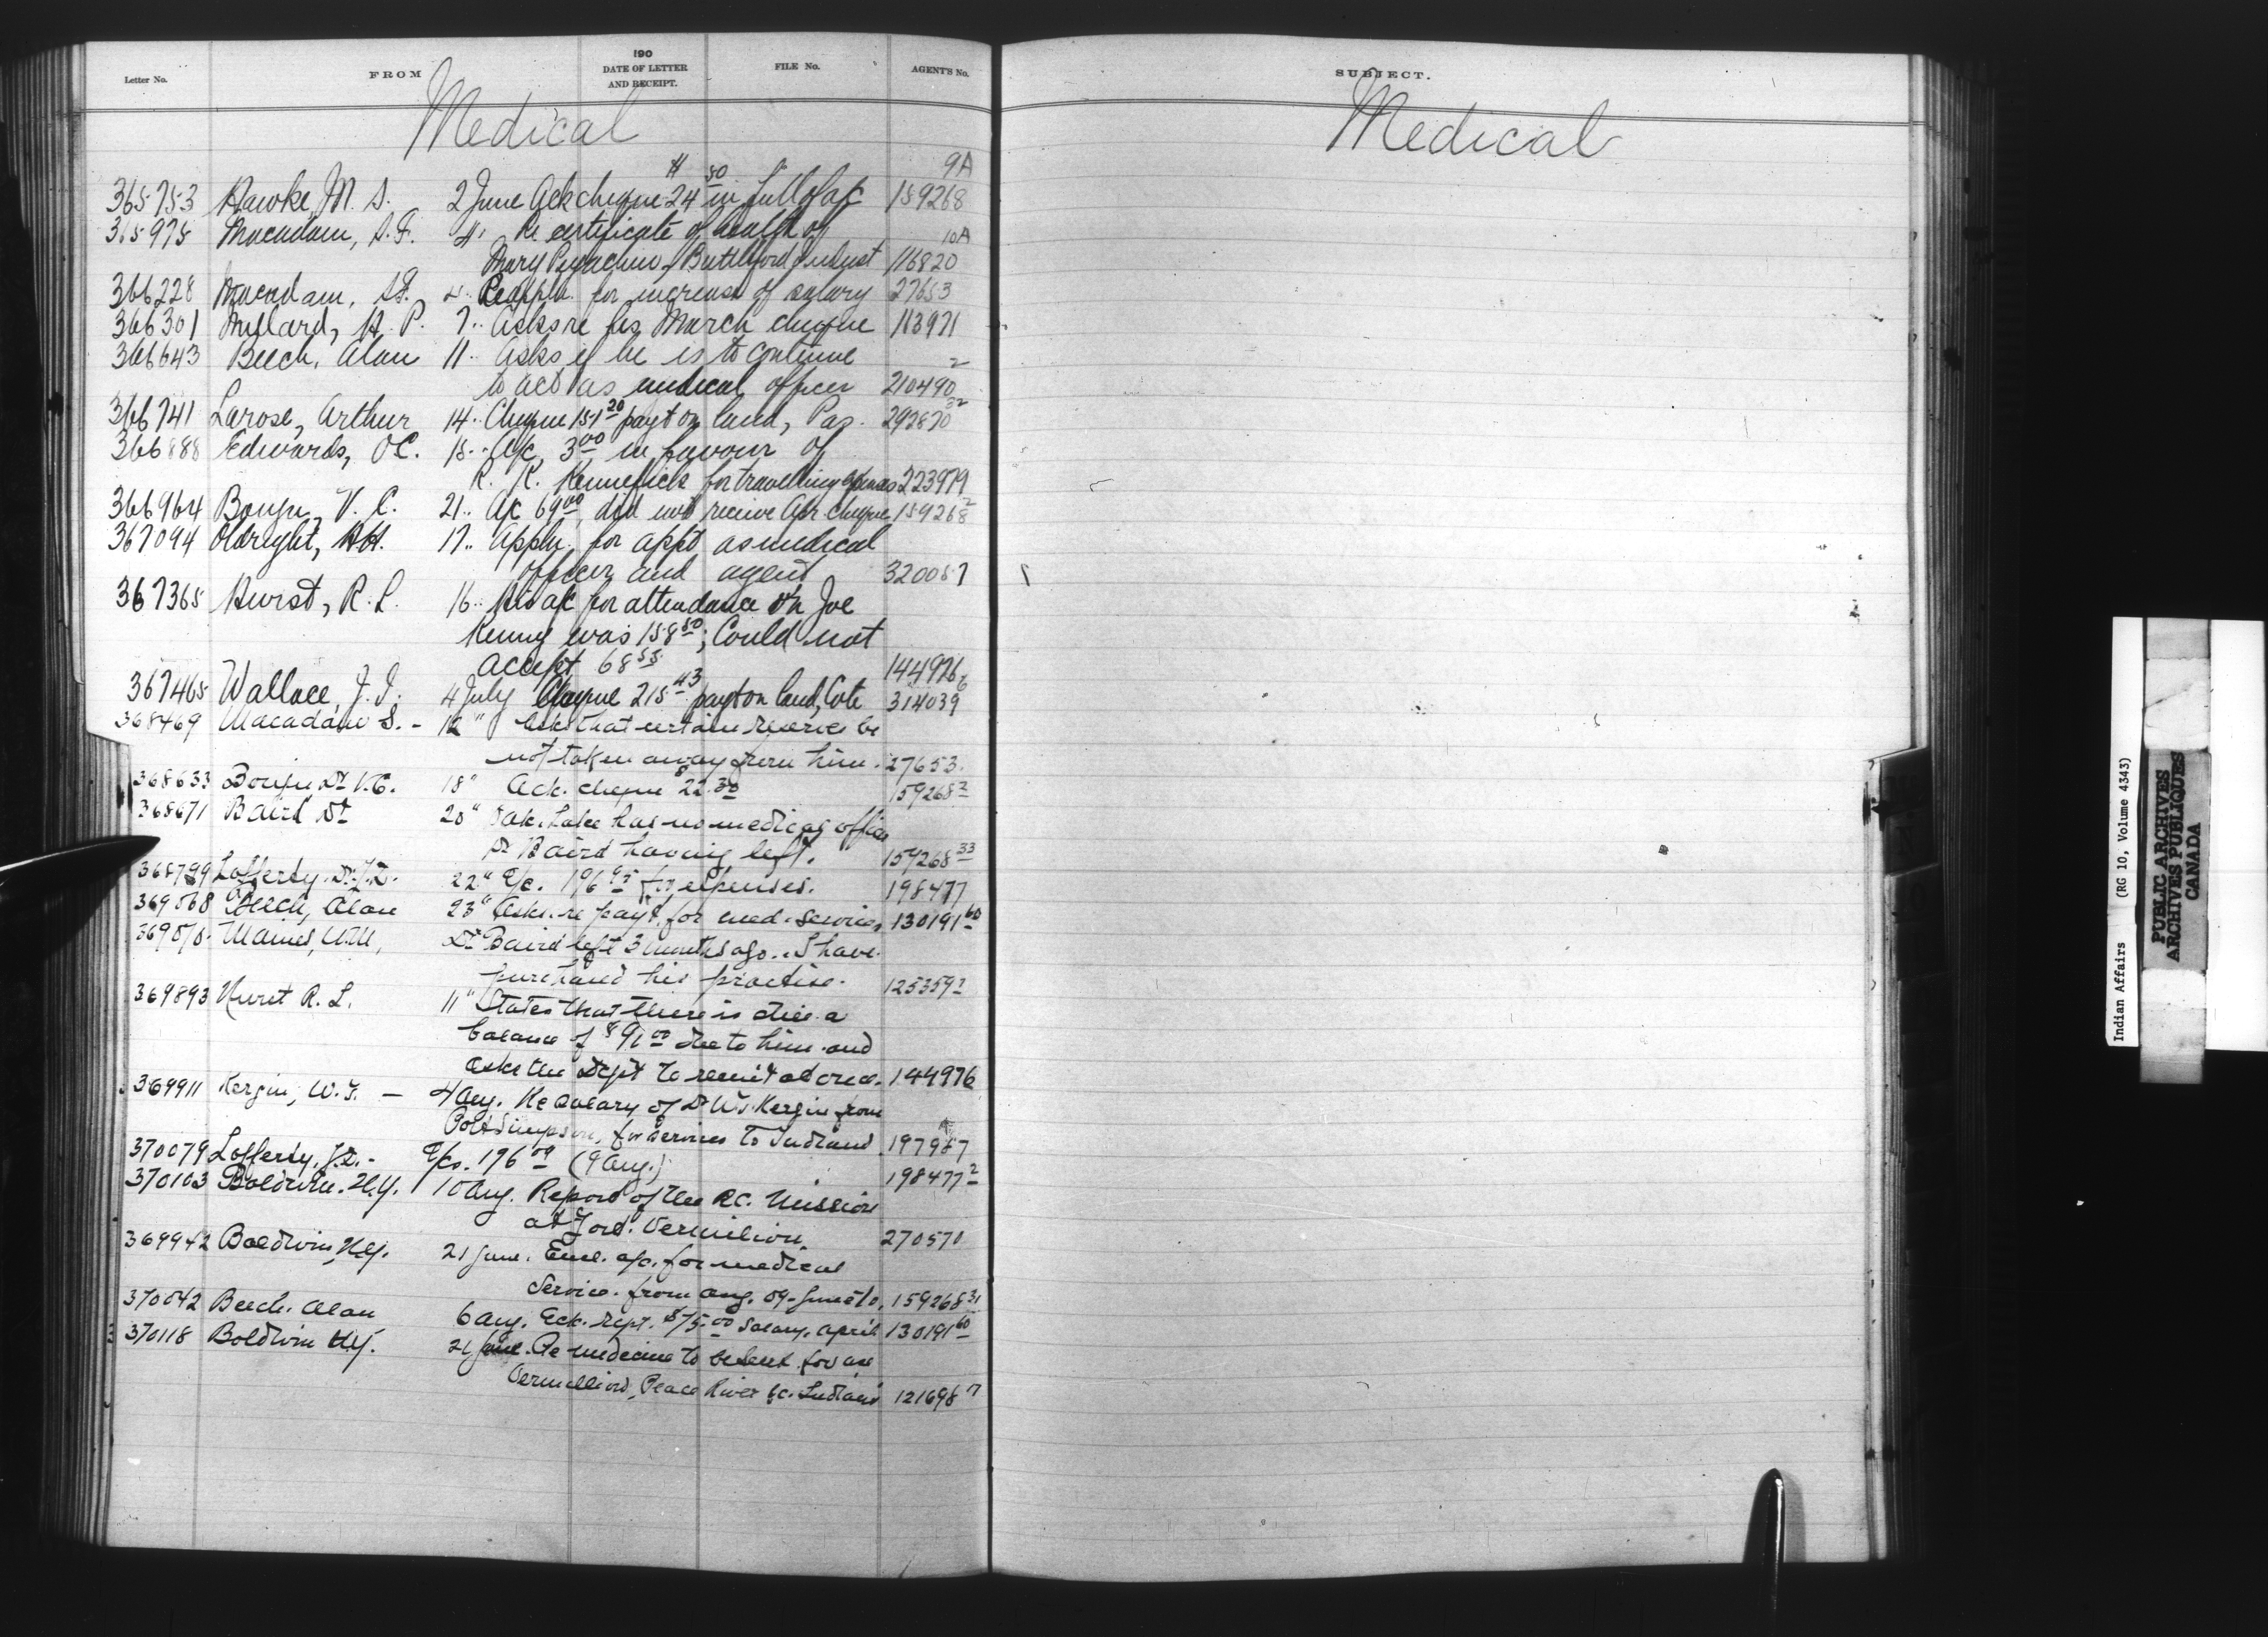 Letter No. FROM 190 DATE OF LETTER AND RECEIPT. FILE No. AGENT'S No.
Medical
9A
365753 Hawke, M. S. 2 June Ack cheque $24 50 in full of a/c 159268
365975 Macadam, S.F. 4" Re certificate of health of 10A
Mary Battleford Indust 116820
366228 Macadam, S.F. 4" Re appln. for increase of salary 27653
366301 Millard, H. P. 7" Asks re his March cheque 113971
366643 Beech, Alan 11" Asks if he is to continue 2
to act as medical officer 210490
366741 Larose, Arthur 14" Cheque 151 20 payt on land, Pas. 292870 32
366888 Edwards, O.C. 15" A/c 3 00 in favour of
R. K. Kennefick for travelling expenses 223979
366964 Bouju, V. C. 21" A/c 69 00, did not receive Apr cheque 159268 2
367094 Oldright, H.H. 17" Appln. for appt as medical
officer and agent 320057
367365 Hurst, R. L. 16" His a/c for attendance on Joe
Kenny was 158 50; Could not
accept 68 55 144976
367465 Wallace, J. I. 4 July Cheque 215 43 payt on land, Cote 314039 6
368469 Macadam S. - 12" Asks that certain reserves be
not taken away from him. 27653.
368633 Bouju Dr V.C. 18" Ack. cheque $22.30 159268 2
368671 Baird Dr 20" Oak Lake has no medical officer
Dr Baird having left. 159268 33
368799 Lafferty. Dr. J.D. 22" a/c. 196 for expenses. 198477
369068 Beech, Alan 23" Asks re payt. for med. services 130191 60
Mames, W.M., Dr Baird left 3 months ago. I have
purchased his practise. 125359 2
369893 Hurst R. L. 11" States that there is still a
balance of $91 00 due to him and
asks the Dept to remit at once. 144976
369911 Kergin, W.T. — 4 Aug. Re salary of Dr W.T. Kergin from
Port Simpson, for services to Indians 197987
370079 Lafferty, J.D. - a/cs. 196 09 (9 Aug.) 198477 2
370103 Baldwin. H.Y. 10 Aug. Report of the R.C. Mission
at Fort. Vermilion 270570
369942 Baldwin, H.Y. 21 June. Encl. a/c. for medical
Service. from Aug. 09 - June 10. 159268 31
370042 Beech. Alan 6 Aug. Ack. rept. $75.00 Salary, April 130191 60
370118 Baldwin H.Y. 21 June. Re medicine to be sent for use
Vermillion, Peace River &c. Indians 121698 7
SUBJECT.
Medical
Indian Affairs (RG 10, Volume 4343)
PUBLIC ARCHIVES
ARCHIVES PUBLIQUES
CANADA